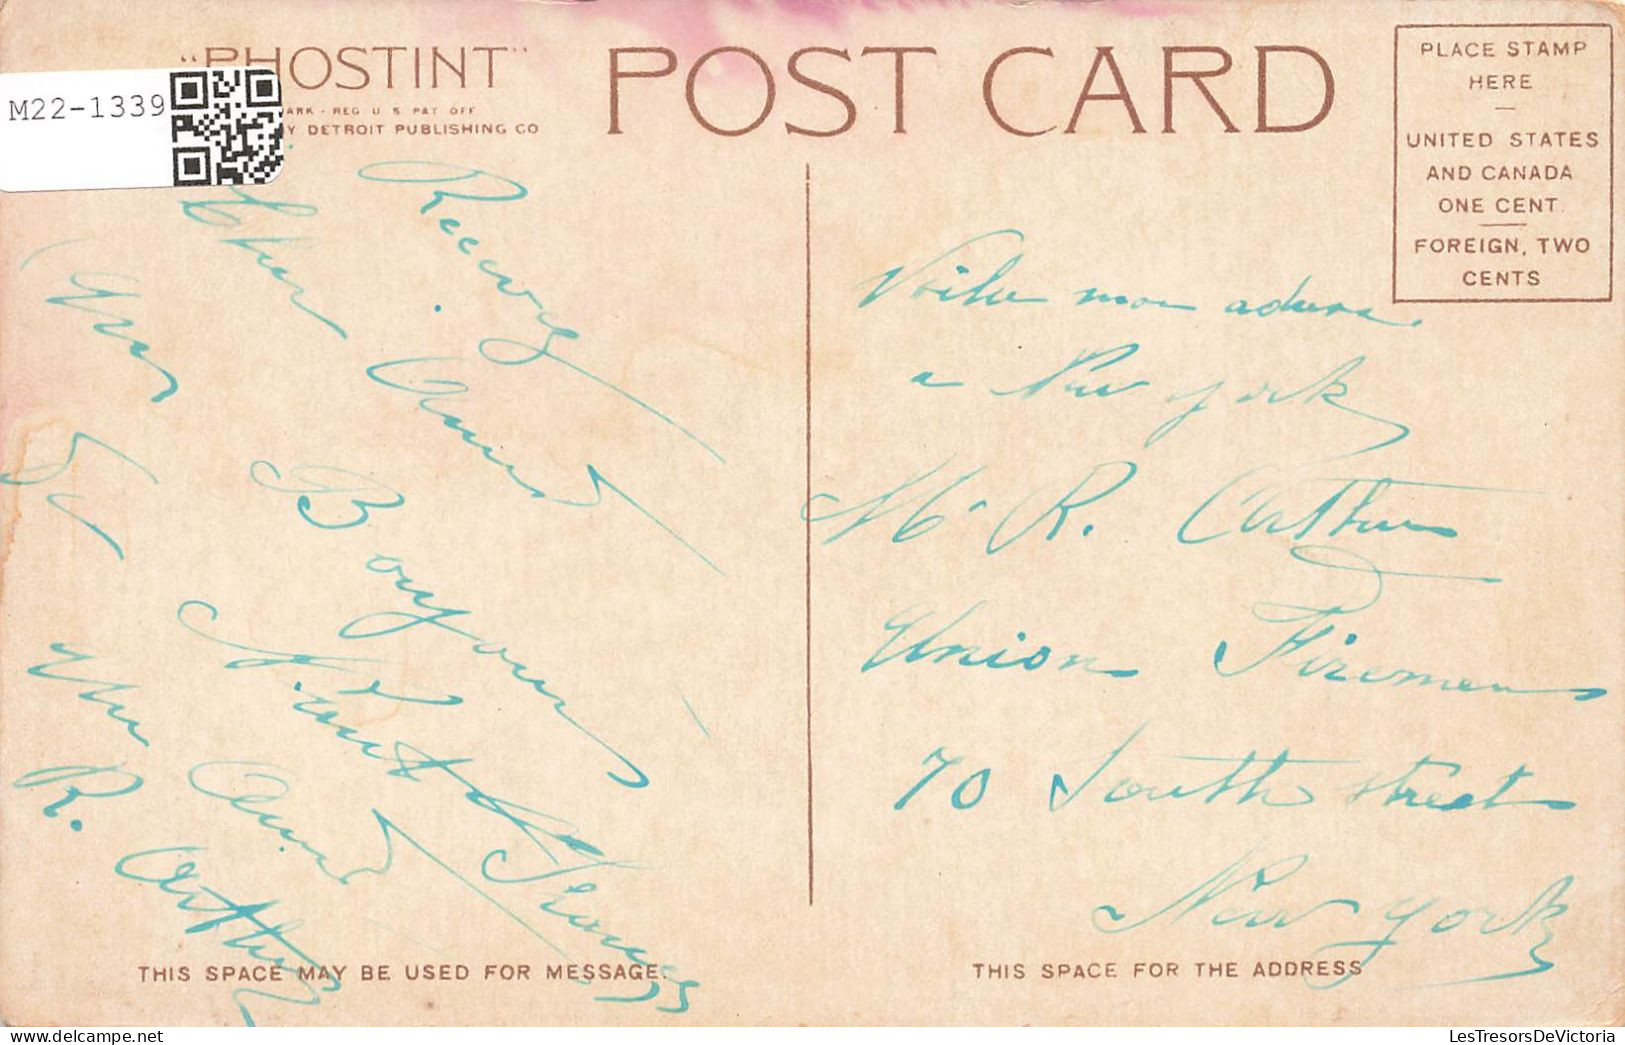 M22-1339
"PHOSTINT"
ARK - REG. U. S. PAT. OFF
Y DETROIT PUBLISHING CO
POST CARD
PLACE STAMP
HERE
UNITED STATES
AND CANADA
ONE CENT.
FOREIGN, TWO
CENTS
Cher Ami
Bonjour
R. Arthur
Voila mon adress.
a New york
Mr R. Arthur
Union Firemen
70 South street
New york
THIS SPACE MAY BE USED FOR MESSAGE.
THIS SPACE FOR THE ADDRESS
LesTresorsDeVictoria